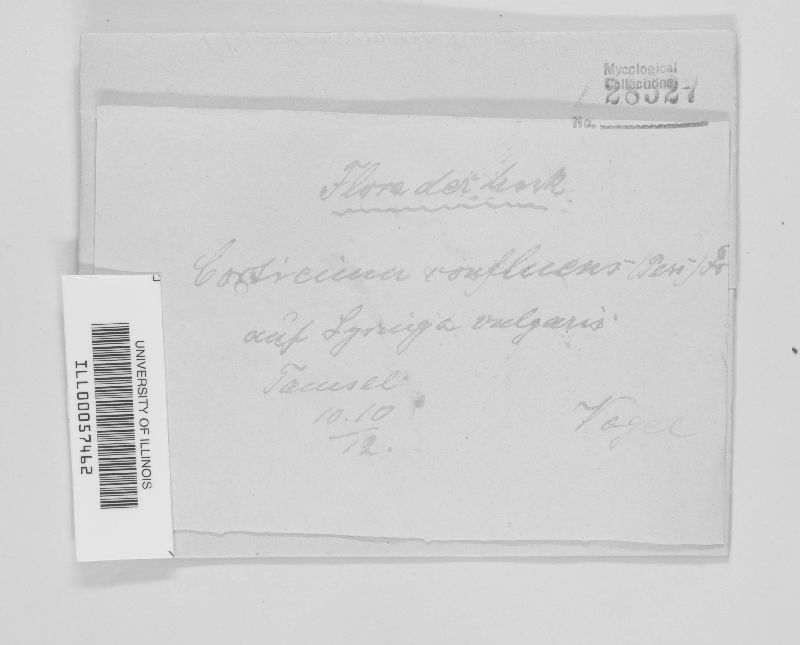 Mycological
Collections
No. 28527
Flora der Mark
Corticium confluens (Pers) Fr
auf Syringa vulgaris
Tamsel
10.10
12.
Vogel
UNIVERSITY OF ILLINOIS
ILL00057462